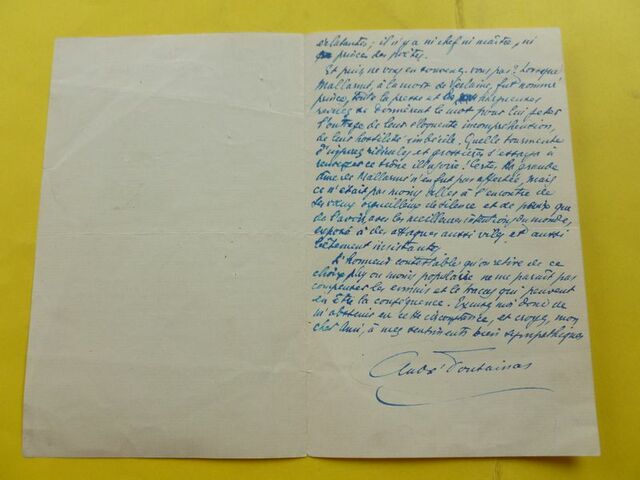 éclatantes ; il n'y a ni chef ni maître, ni
prince des poètes.
Et puis ne vous en souvenez-vous pas ? Lorsque
Mallarmé, à la mort de Verlaine, fut nommé
prince, toute la presse et les hargneuses
revues se donnèrent le mot pour lui jeter
l'outrage de leur éloquente incompréhension,
de leur hostilité imbécile. Quelle tourmente
d'injures ridicules et grossières s'essaya à
renverser ce trône illusoire ! Certes, la grande
âme de Mallarmé n'en fut pas affectée, mais
ce n'était pas moins aller à l'encontre de
ses vœux orgueilleux de silence et de paix que
de l'avoir, avec les meilleures intentions du monde,
exposé à des attaques aussi viles et aussi
bêtement insistantes.
L'honneur contestable qu'on retire de ce
choix plus ou moins populaire ne me paraît pas
compenser les ennuis et le tracas qui peuvent
en être la conséquence. Excusez-moi donc de
m'abstenir en cette circonstance, et croyez, mon
cher ami, à mes sentiments bien sympathiques
André Fontainas